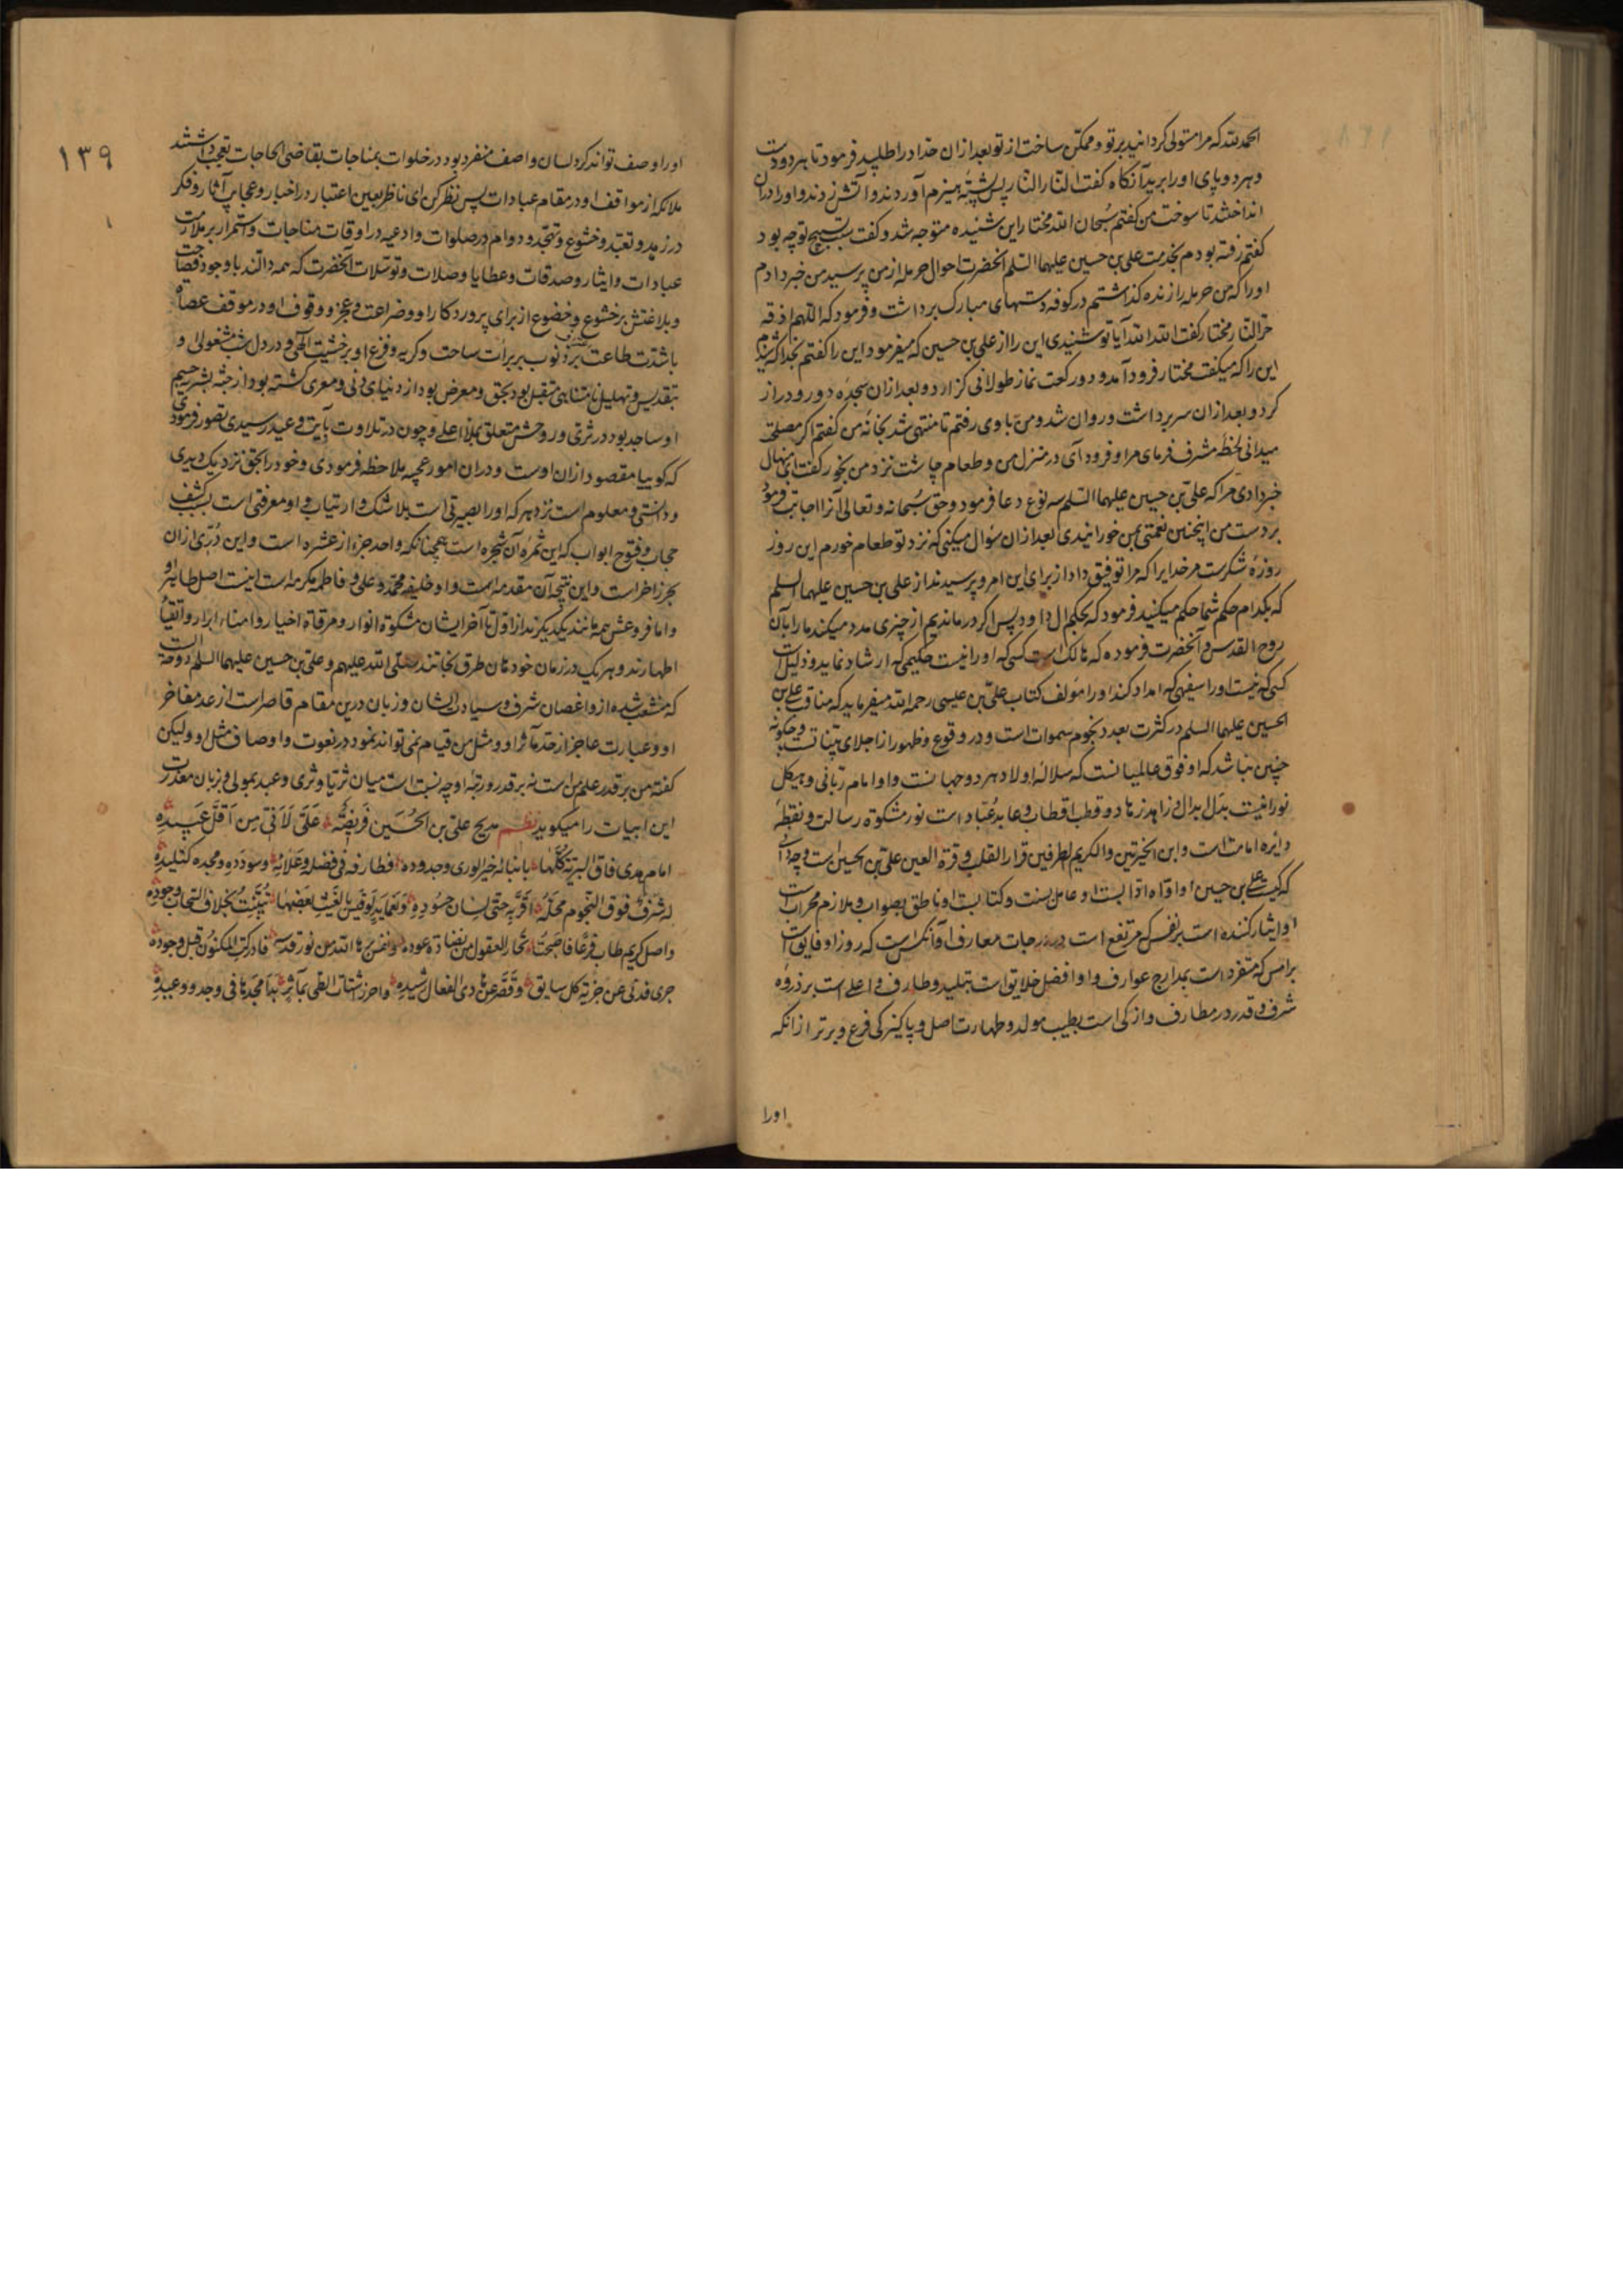 الحمد لله که مرا مستولی کردانید بر تو و ممکن ساخت از تو بعد از ان حداد را طلبید فرمود تا هر دو دست
و هر دو پای او را برید آنکاه کفت النار النار پس پشتهٔ هیزم آوردند و آتش زدند و او را در ان
انداختند تا سوخت من کفتم سبحان الله مختار این شنیده متوجه شد و کفت سبب تسبیح تو چه بود
کفتم رفته بودم بخدمت علی بن حسین علیهما السلم آنحضرت احوال حرمله از من پرسید من خبر دادم
او را که من حرمله را زنده کذاشتم در کوفه دستهای مبارک برداشت و فرمود که اللهم اذقه
حر النار مختار کفت الله الله آیا تو شنیدی این را از علی بن حسین که میفرمود این را کفتم بخدا که شنیدم
این را که میکفت مختار فرود آمد و دو رکعت نماز طولانی کزارد و بعد از ان سجدهٔ دور و دراز
کرد و بعد از ان سر برداشت و روان شد و من با وی رفتم تا منتهی شد بخانهٔ من کفتم اکر مصلحت
میدانی لحظهٔ مشرف فرمای مرا و فرود آی در منزل من و طعام چاشت نزد من بخور کفت ای منهال
خبر دادی مرا که علی بن حسین علیهما السلم سه نوع دعا فرمود و حق سبحانه و تعالی آنرا اجابت فرمود
بر دست من اینچنین نعمتی بمن خورانیدی بعد از ان سؤال میکنی که نزد تو طعام خورم این روز
روزهٔ شکرست مر خدایرا که مرا توفیق داد از برای این امر و پرسیدند از علی بن حسین علیهما السلم
که بکدام حکم شما حکم میکنید فرمود که بحکم ال داود پس اکر درماندیم از چیزی مدد میکند ما را بآن
روح القدس و آنحضرت فرموده که هالک است کسی که او را نیست حکیمی که ارشاد نماید و ذلیل است
کسی که نیست او را سفیهی که امداد کند او را مؤلف کتاب علی بن عیسی رحمه الله میفرماید که مناقب علی بن
الحسین علیهما السلم در کثرت بعدد نجوم سموات است و در وقوع و ظهور از اجلای بیناتست و چکونه
چنین نباشد که او فوق عالمیانست که سلالهٔ اولاد هر دو جهانست و او امام ربانی و هیکل
نورانیست بدل ابدال و زاهد زهاد و قطب اقطاب و عابد عباد است نور مشکوة رسالت و نقطهٔ
دایرهٔ امامت است و ابن الخیرتین و الکریم الطرفین قرار القلب و قرة العین علی بن الحسین است و چه دانی
که کیست علی بن حسین او اواه اوابست و عامل سنت و کتابست او ناطق بصواب و ملازم محرابست
او ایثار کننده است بر نفس که مرتفع است در درجات معارف او آنکس است که روز او فایق است
بر امس که متفرد است بمدارج عوارف و او افضل خلایق است بتلید و طارف و اعلی است بر ذروهٔ
شرف و قدر در مطارف و ازکی است بطیب مولد و طهارت اصل و پاکیزکی فرع و برتر از انکه
اورا
١٣٩
او را وصف تواند کرد لسان واصف منفرد بود در خلوات بمناجات بقاضی الحاجات تعجب داشتند
ملائکه از مواقف او در مقام عبادات پس نظر کن ای ناظر بعین اعتبار در اخبار و عجایب آثار و فکر
در زهد و تعبد و خشوع و تهجد و دوام در صلوات و ادعیه در اوقات مناجات و استمرار بر ملازمت
عبادات و ایثار و صدقات و عطایا و صلات و توسلات آنحضرت که همه دالند با وجود فصاحت
و بلاغتش بر خشوع و خضوع از برای پروردکار او و ضراعت و عجز و وقوف او در موقف عصاه
با شدت طاعت بر ذنوب بر برأت ساحت و کریه و فزع او بر خشیت الهی و در دل شب مشغولی و
تقدیس و تهلیل نامتناهی متقبل بود بحق و معرض بود از دنیای دنی و معری کشته بود از جثه بشر جسم
او ساجد بود در ثری و روحش متعلق بملأ اعلی و چون در تلاوت بآیت وعید رسیدی تصور فرمودی
که کوییا مقصود از ان اوست و در ان امور عجیبه ملاحظه فرمودی و خود را بحق نزدیک دیدی
و دانستی و معلوم است نزد هر که او را بصیرتی است بلا شک و ارتیاب و او معرفتی است بسبب کشف
حجاب و فتوح ابواب که این ثمرهٔ آن شجره است همچنانکه واحد جزء از عشره است و این دری از ان
بحر زاخر است و این نتیجه آن مقدمه است و او خلیفه محمد و علی و فاطمه مکرمه است اینست اصل طاهر او
و اما فروعش همه مانند یکدیکرند از اول تا آخر ایشان مشکوة انوار و مرقاة اخیار و امناء ابرار و اتقیاء
اطهارند و هر یک در زمان خودشان طرق نجاتند صلی الله علیهم و علی بن حسین علیهما السلم دوحة است
که منشعب شده از و اغصان شرف و سیادت ایشان و زبان درین مقام قاصر است از عد مفاخر
او و عبارت عاجز از حد مآثر او و مثل من قیام نمی تواند نمود در نعوت و اوصاف مثل او و لیکن
کفته من بر قدر علم من است نه بر قدر و رتبهٔ او چه نسبت است میان ثریا و ثری و عبد بمولی و زبان معذرت
این ابیات را میکوید نظم مدیح علی بن الحسین فریضة علی لانی من اقل عبیده
امام هدی فاق البریة کلها بابنائه خیر الوری و جدوده فطارفه فی فضله و علائه و سودده و مجده کتلیده
له شرف فوق النجوم محله اقر به حتی لسان حسوده و نعماء ید لو قیس بالغیث بعضها تبینت بخلا فی السحاب و جوده
و اصل کریم طاب فرعا فاصبحت تحار العقول من نضارة عوده و نفس براها الله من نور قدسه فادرکت المکنون قبل وجوده
جری فدنی عن جریه کل سابق و قصر عن هادی الفعال رشیده و احرز اشتات العلی بمآثر بدا مجدها فی وعده و وعیده